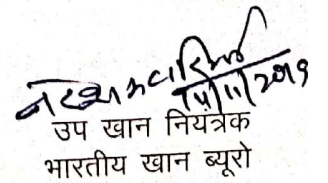 14/11/2019
उप खान नियंत्रक
भारतीय खान ब्यूरो